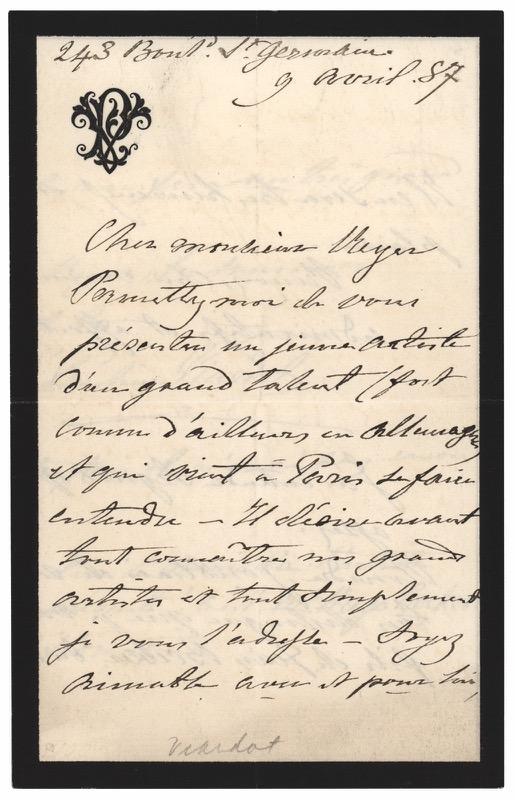 243 Boul.d St. Germain.
9 avril. 87
PV
Cher monsieur Reyer
Permettez moi de vous
présenter un jeune artiste
d'un grand talent (fort
connu d'ailleurs en Allemagne
et qui vient à Paris se faire
entendre — Il désire avant
tout connaître nos grands
artistes et tout simplement
je vous l'adresse — Soyez
aimable avec et pour lui,
Viardot